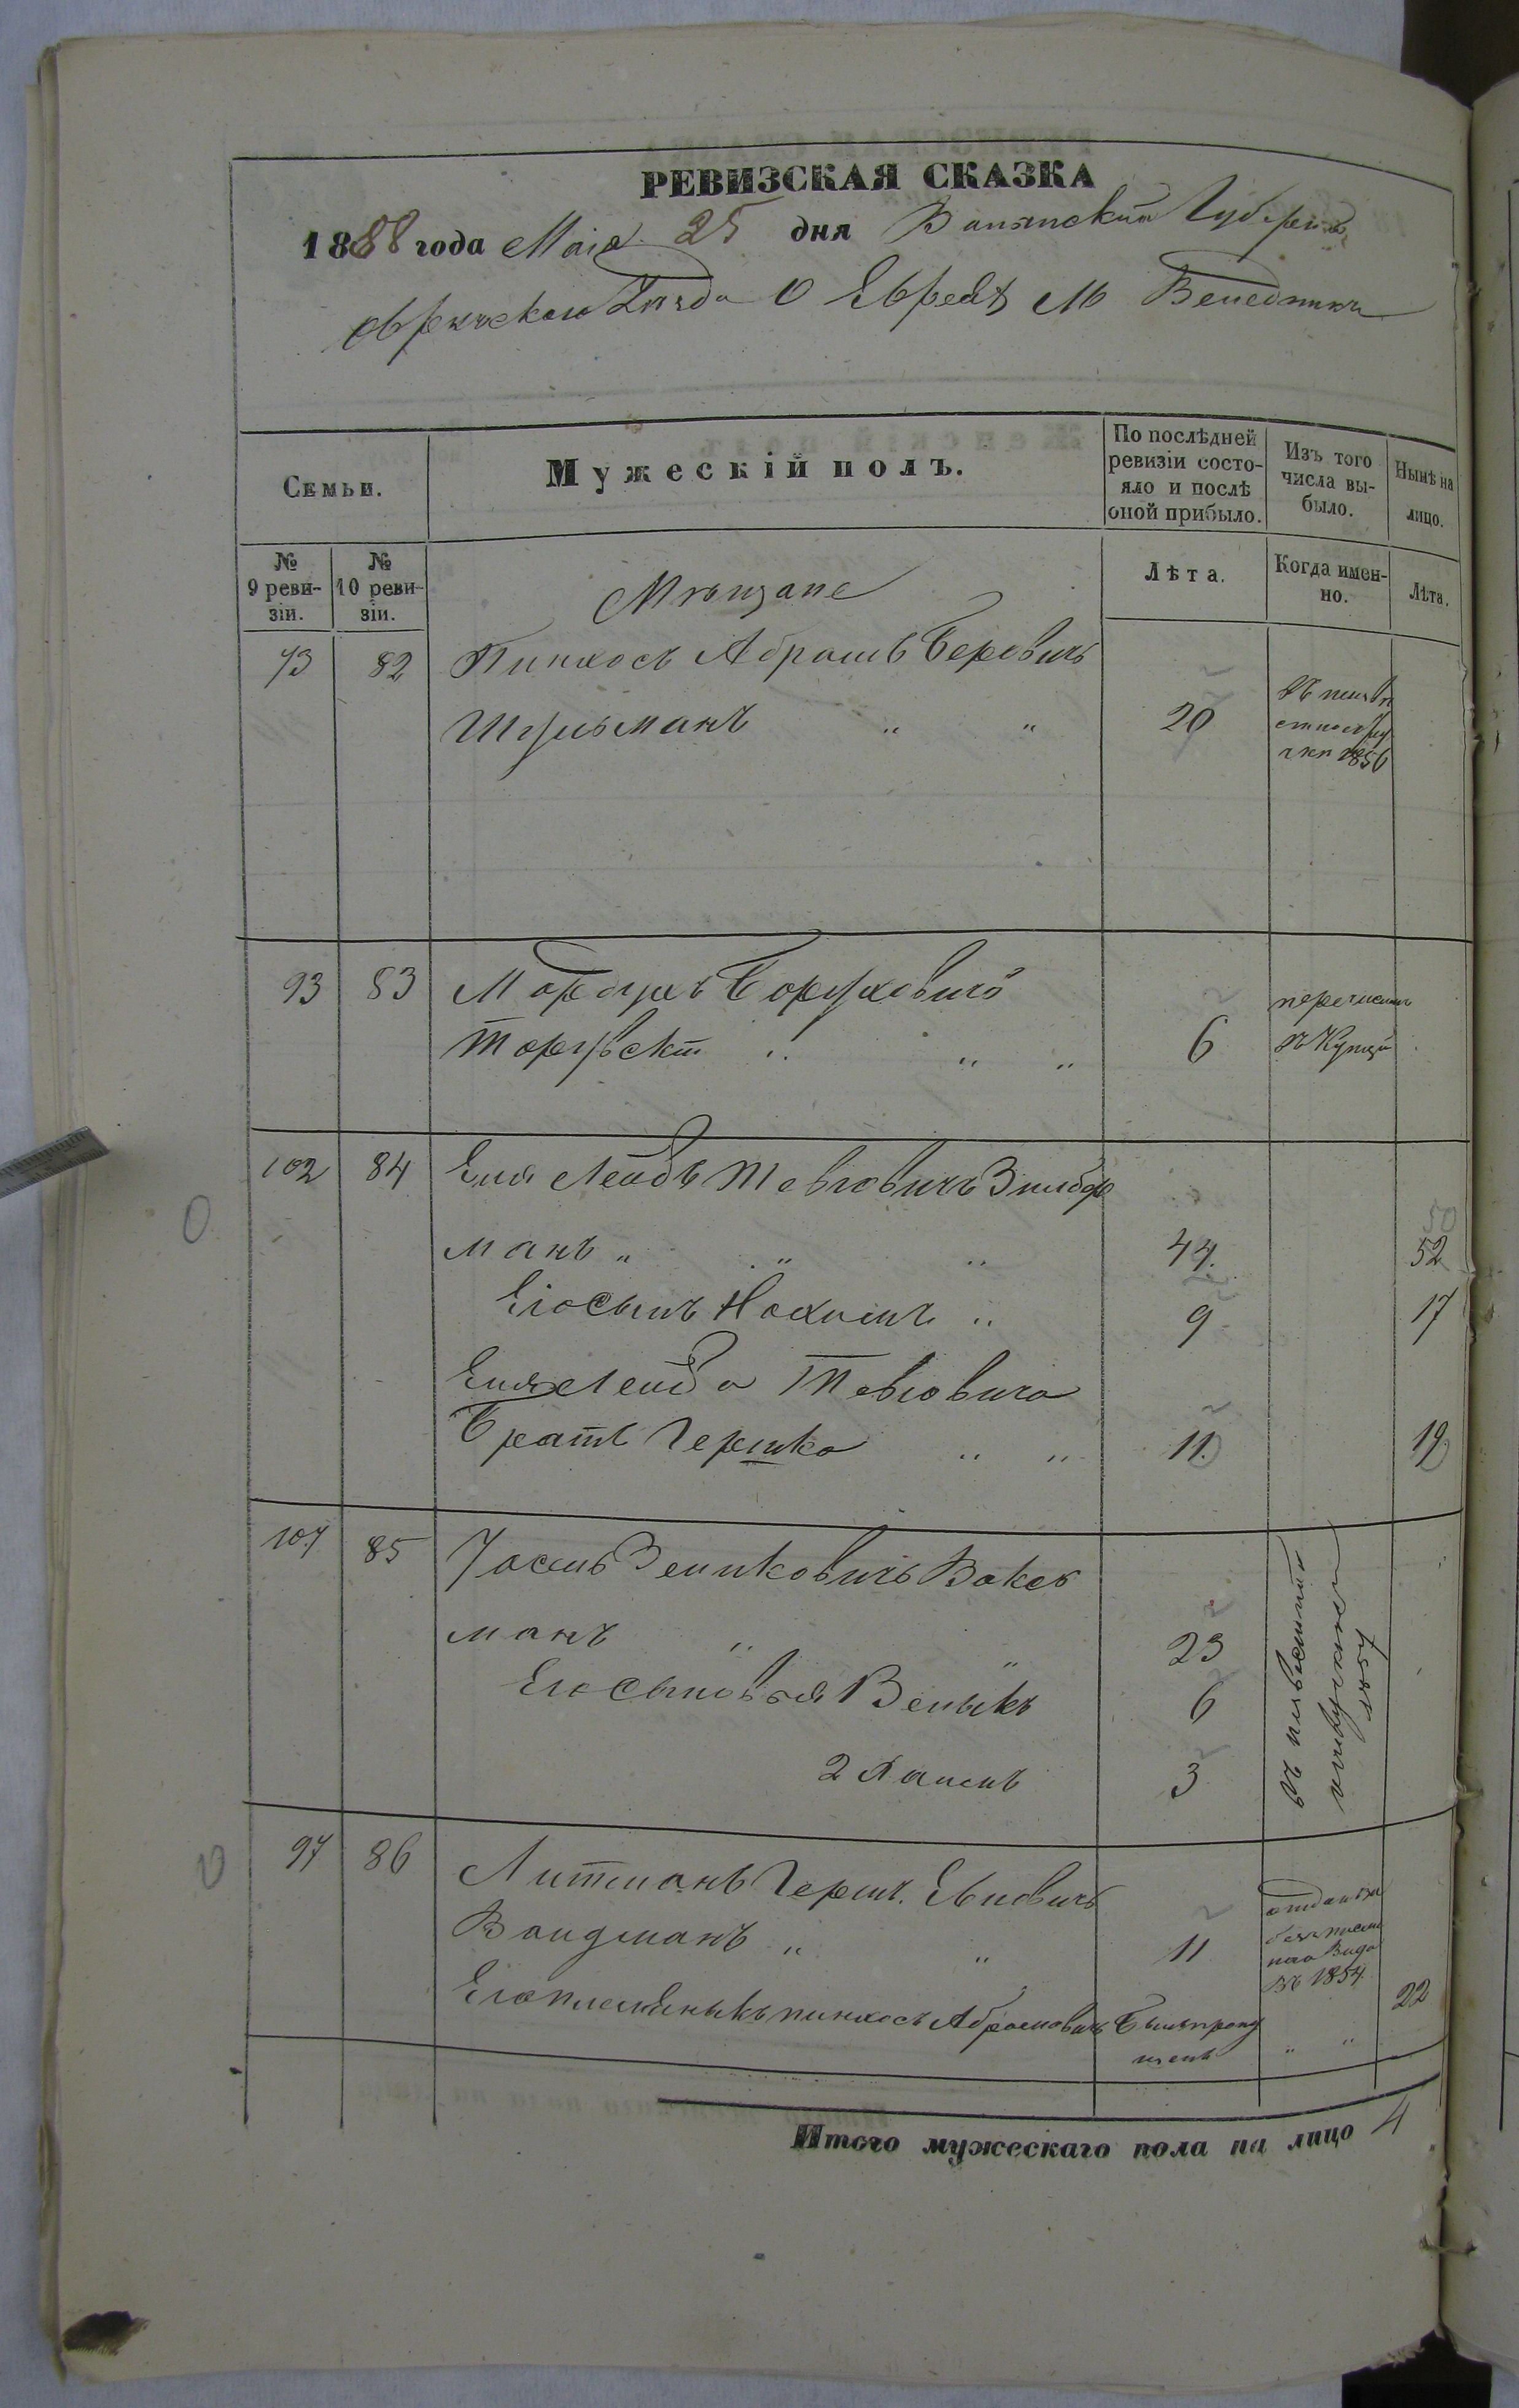 РЕВИЗСКАЯ СКАЗКА
1858 года Маія 25 дня Волынской Губерніи
Овручскаго Уѣзда О Евреяхъ М Веледникъ
Семьи.
Мужескій полъ.
По послѣдней ревизіи состо-
яло и послѣ
оной прибыло.
Изъ того
числа вы-
было.
Нынѣ на
лицо.
№
9 реви-
зіи.
№
10 реви-
зіи.
Мѣщане
Лѣта.
Когда имен-
но.
Лѣта.
73 82 Пинхосъ Абрамъ Беровичъ
Шульманъ " " 20 1856
93 83 Мордухъ Боруховичъ перечисленъ
6 въ Купцы
102 84 Еля Лейбъ Тевіовичъ Зильбер
манъ " " " 44. 50 52
Его сынъ Нохимъ " 9 17
Еля Лейба Тевіовича
Братъ Гершко " " 11. 19
107 85 Іосель Зеликовичъ Вакс
манъ " " 23
Его сыновья 6
2 3
въ неизвѣстной отлучкѣ 1857
97 86 Литманъ Герш. Евновичъ
Вайдманъ " " 11
въ 1854
Его племяникъ Пинхосъ Абрамовичъ Былъ пропу
щенъ " " 22
Итого мужескаго пола на лицо 4